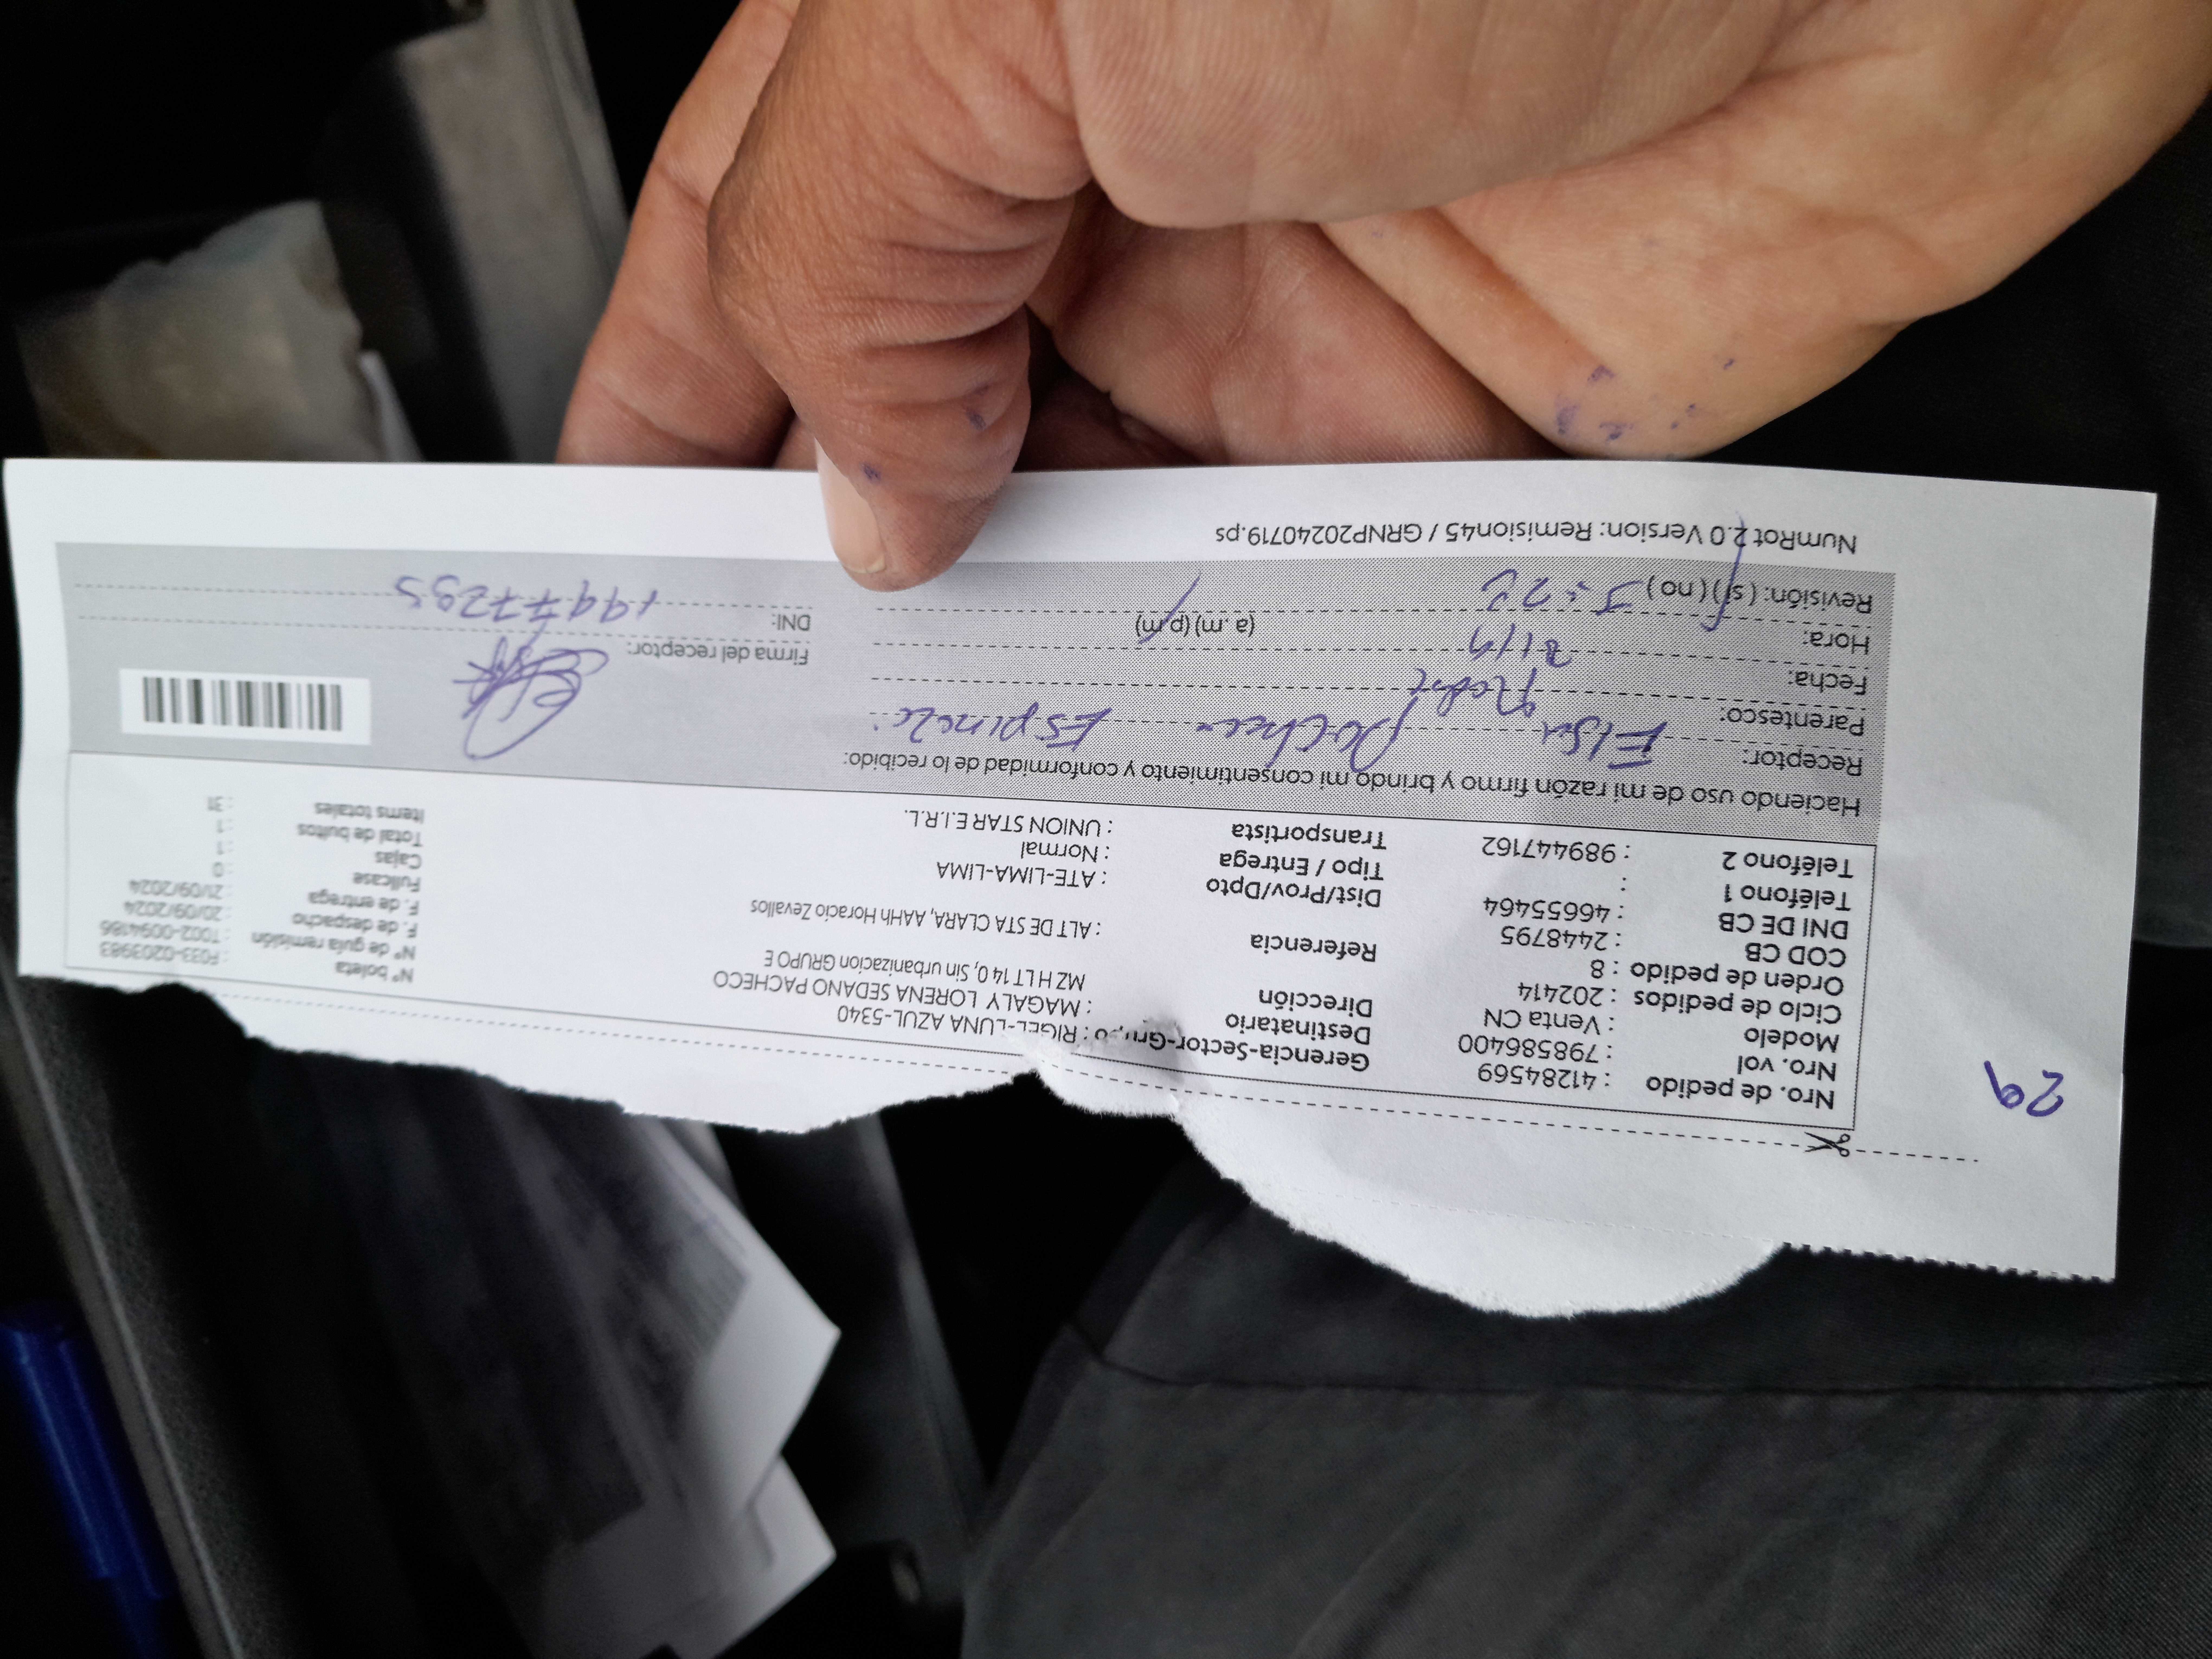 29
Nro. de pedido : 41284569
Nro. vol : 798586400
Modelo : Venta CN
Ciclo de pedidos : 202414
Orden de pedido : 8
COD CB : 2448795
DNI DE CB : 46655464
Teléfono 1 :
Teléfono 2 : 989447162
Gerencia-Sector-Grupo : RIGEL-LUNA AZUL-5340
Destinatario : MAGALY LORENA SEDANO PACHECO
Dirección MZ H LT 14 0, Sin urbanizacion GRUPO E
Referencia : ALT DE STA CLARA, AAHh Horacio Zevallos
Dist/Prov/Dpto : ATE-LIMA-LIMA
Tipo / Entrega : Normal
Transportista : UNION STAR E.I.R.L.
N° boleta : F033-0203983
N° de guía remisión : T002-0094186
F. de despacho : 20/09/2024
F. de entrega : 21/09/2024
Fullcase : 0
Cajas : 1
Total de bultos : 1
Items totales : 31
Haciendo uso de mi razón firmo y brindo mi consentimiento y conformidad de lo recibido:
Receptor: Elsa Pacheco Espinoza
Parentesco:
Fecha: 21/9
Hora: (a.m) (p.m)
Revisión: (sí) (no)
Firma del receptor:
DNI:
NumRot 2.0 Version: Remision45 / GRNP20240719.ps